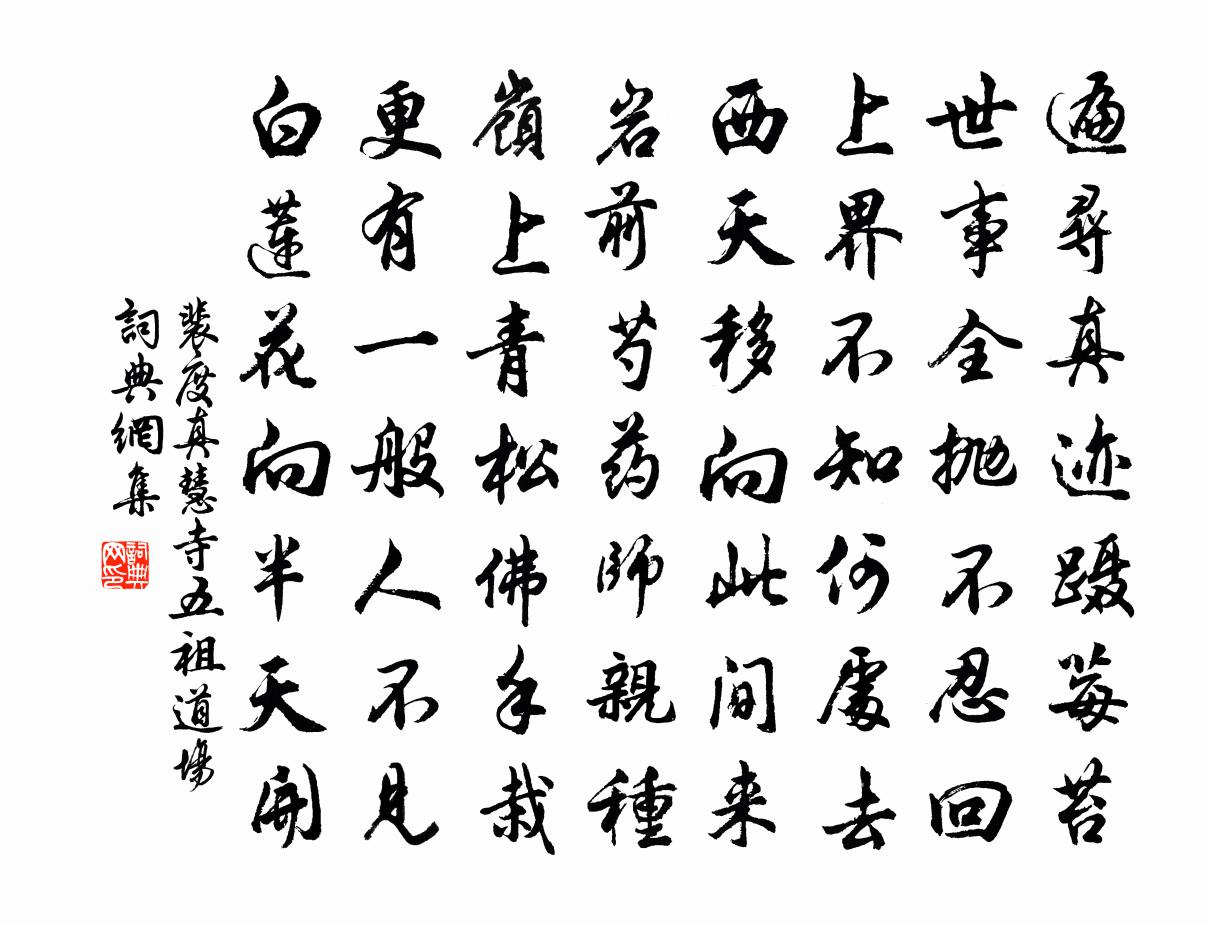 遍尋真迹蹑莓苔
世事全抛不忍回
上界不知何處去
西天移向此间来
岩前芍药師親種
嶺上青松佛手栽
更有一般人不見
白蓮花向半天開
裴度真慧寺五祖道場
詞典網集
詞典网印